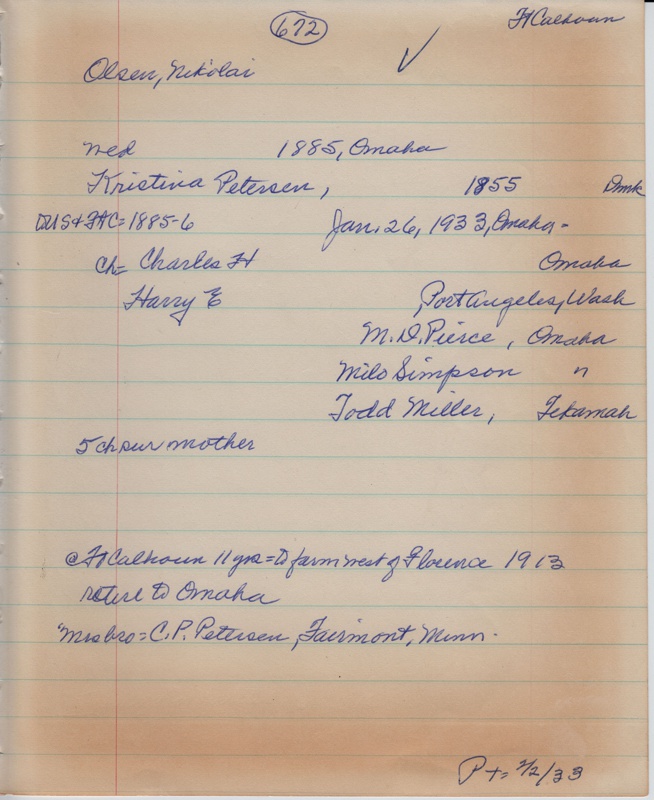 672
Ft Calhoun
Olsen, Nikolai
med 1885, Omaha
Kristina Petersen, 1855 Dmk
US & FtC = 1885-6 Jan. 26, 1933, Omaha -
Ch = Charles H Omaha
Harry E Port Angeles, Wash
M. D. Pierce, Omaha
Milo Simpson "
Todd Miller, Tekamah
5 ch sur mother
@ Ft Calhoun 11 yrs = to farm west of Florence 1913
retire to Omaha
Mrs bro = C. P. Petersen, Fairmont, Minn.
P + = 2/2/33